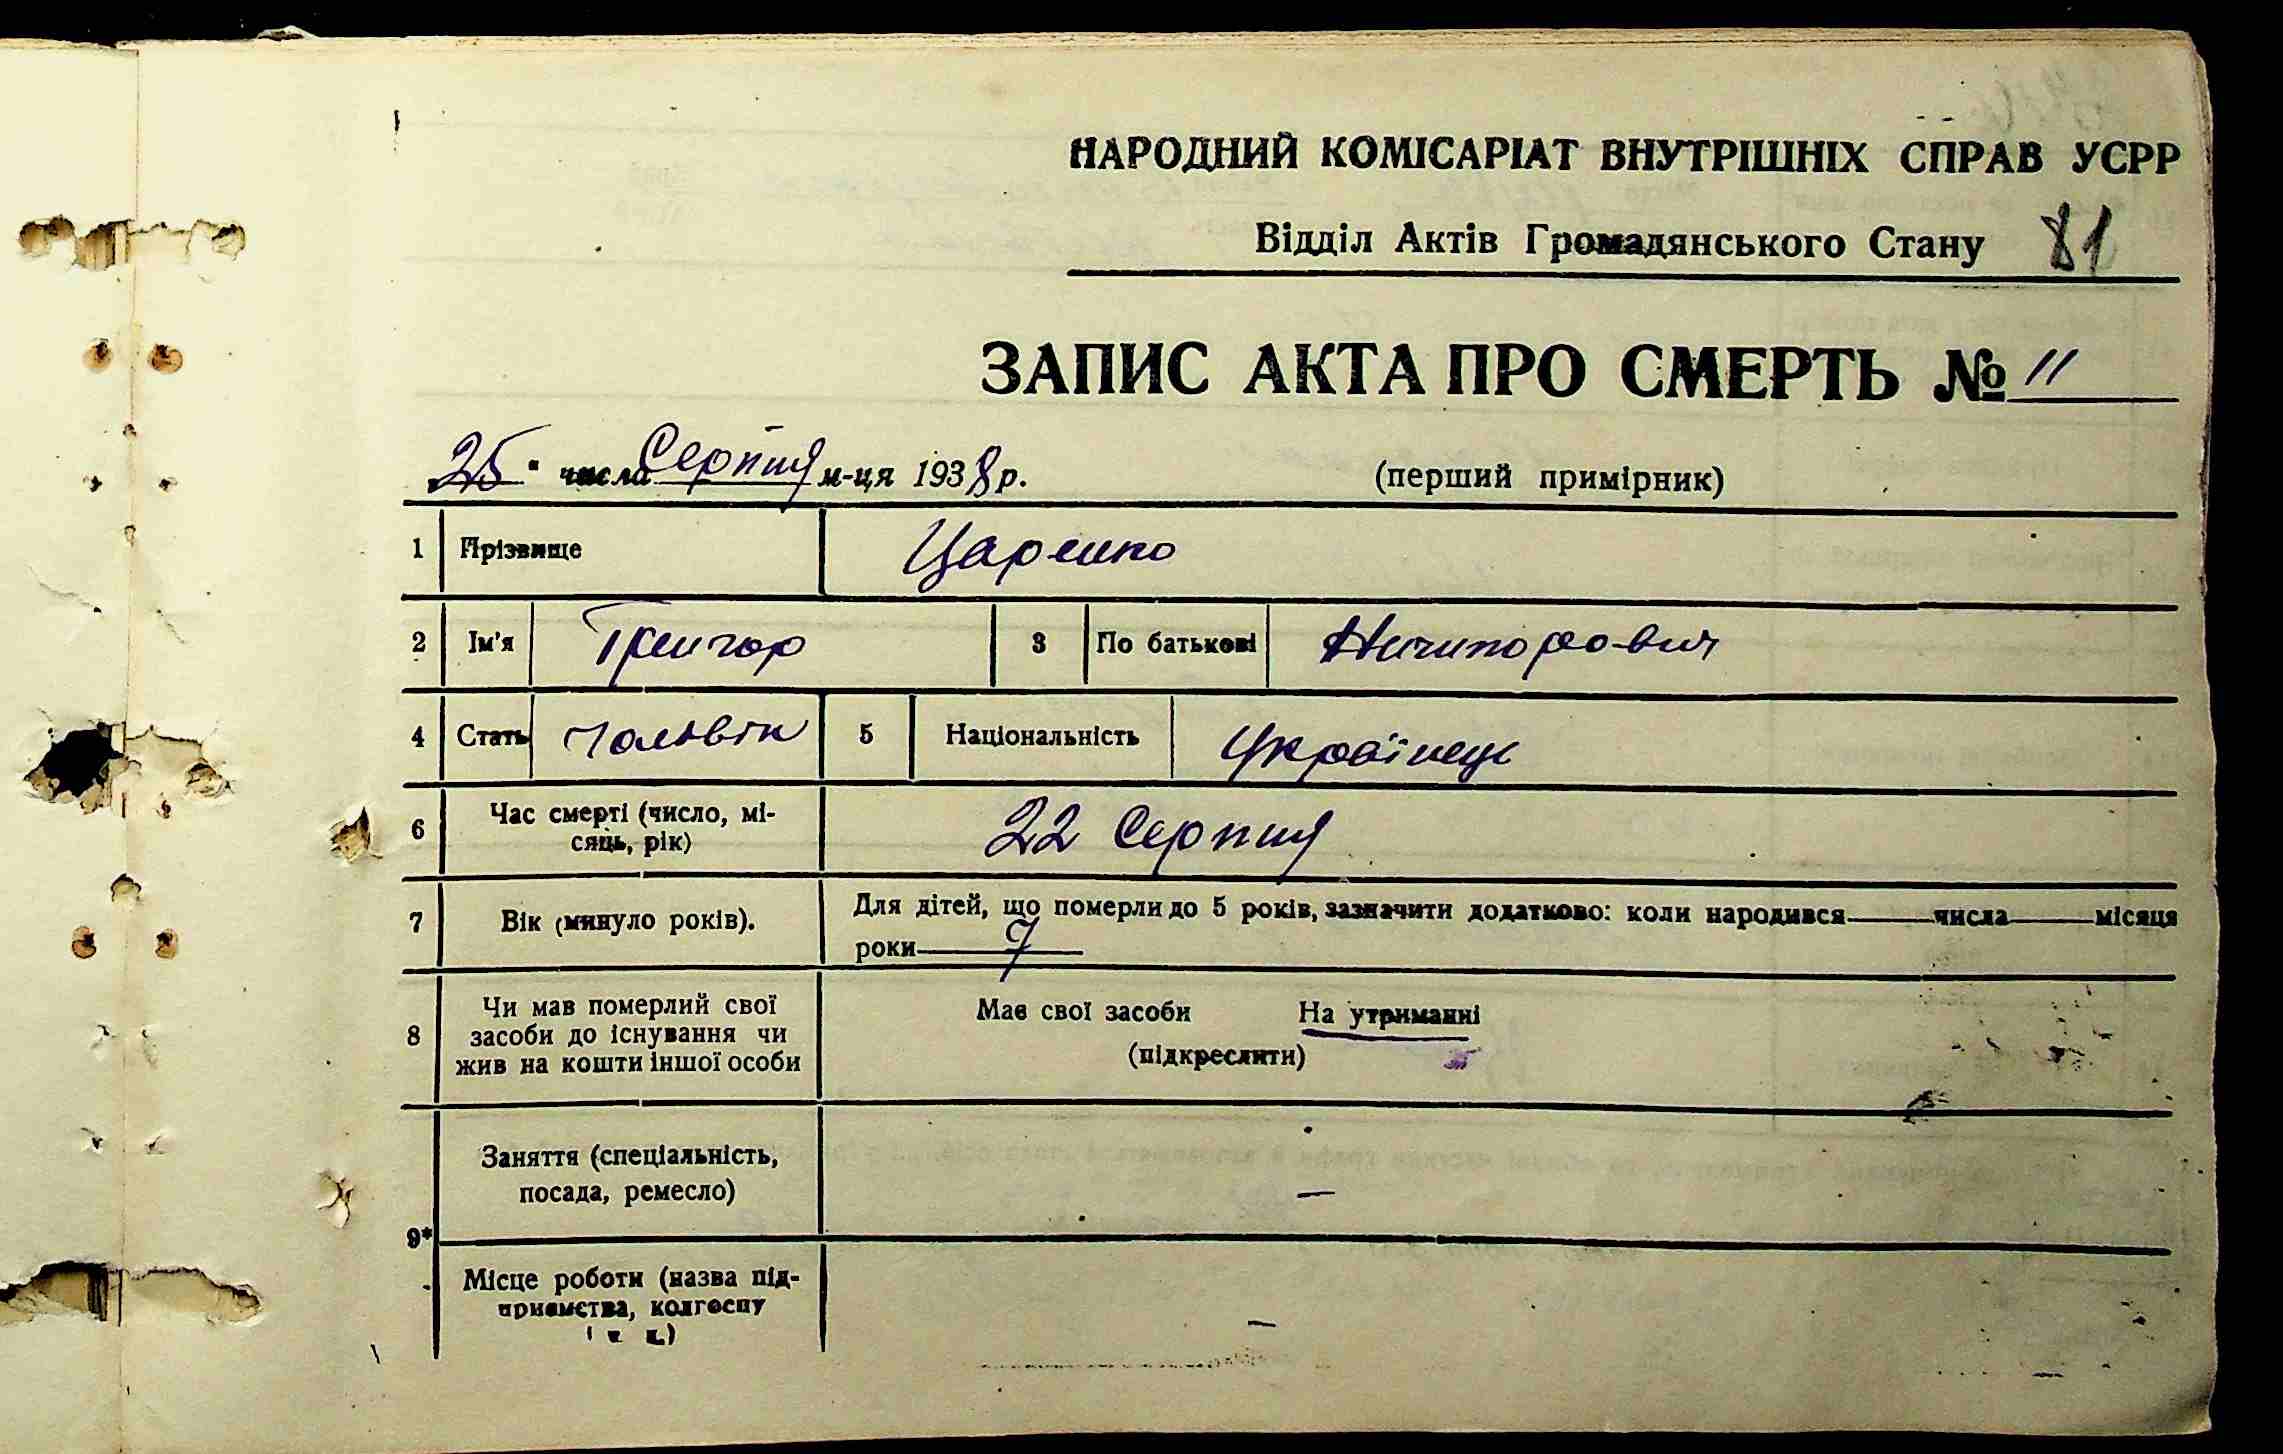 НАРОДНИЙ КОМІСАРІАТ ВНУТРІШНІХ СПРАВ УСРР
Відділ Актів Громадянського Стану 81
ЗАПИС АКТА ПРО СМЕРТЬ № 11
25 " числа Серпня м-ця 1938 р. (перший примірник)
1 Прізвище Царенко
2 Ім'я Григор 3 По батькові Ничипорович
4 Стать Чоловік 5 Національність Українець
6 Час смерті (число, мі-
сяць, рік) 22 Серпня
7 Вік (минуло років). Для дітей, що померли до 5 років, зазначити додатково: коли народився числа місяця
роки 7
8 Чи мав померлий свої
засоби до існування чи
жив на кошти іншої особи
Має свої засоби На утриманні
(підкреслити)
9* Заняття (спеціальність,
посада, ремесло) —
Місце роботи (назва під-
приємства, колгоспу
і т. д.) —